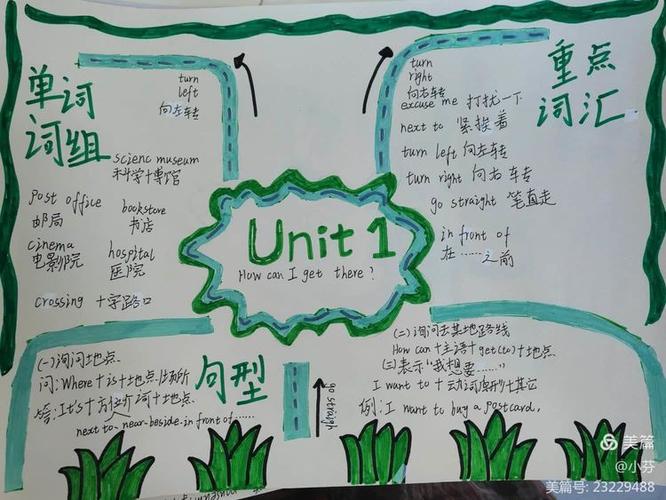 单词
词组
turn
left
向左转
scienc museum
科学博馆
post office
邮局
bookstore
书店
cinema
电影院
hospital
医院
crossing 十字路口
turn
right
向右转
重点
词汇
excuse me 打扰一下
next to 紧挨着
turn left 向左转
turn right 向右转
go straight 笔直走
in front of
在……之前
Unit 1
How can I get there?
(一)询问地点
问:Where+is+地点/场所
答:It's+方位介词+地点.
next to-near-beside-in front of……
句型
go straigh
(二)询问去某地路线
How can+主语+get(to)+地点
(三)表示"我想要……"
I want to+动词原形+其它
例:I want to buy a postcard.
美篇
@小芬
美篇号: 23229488